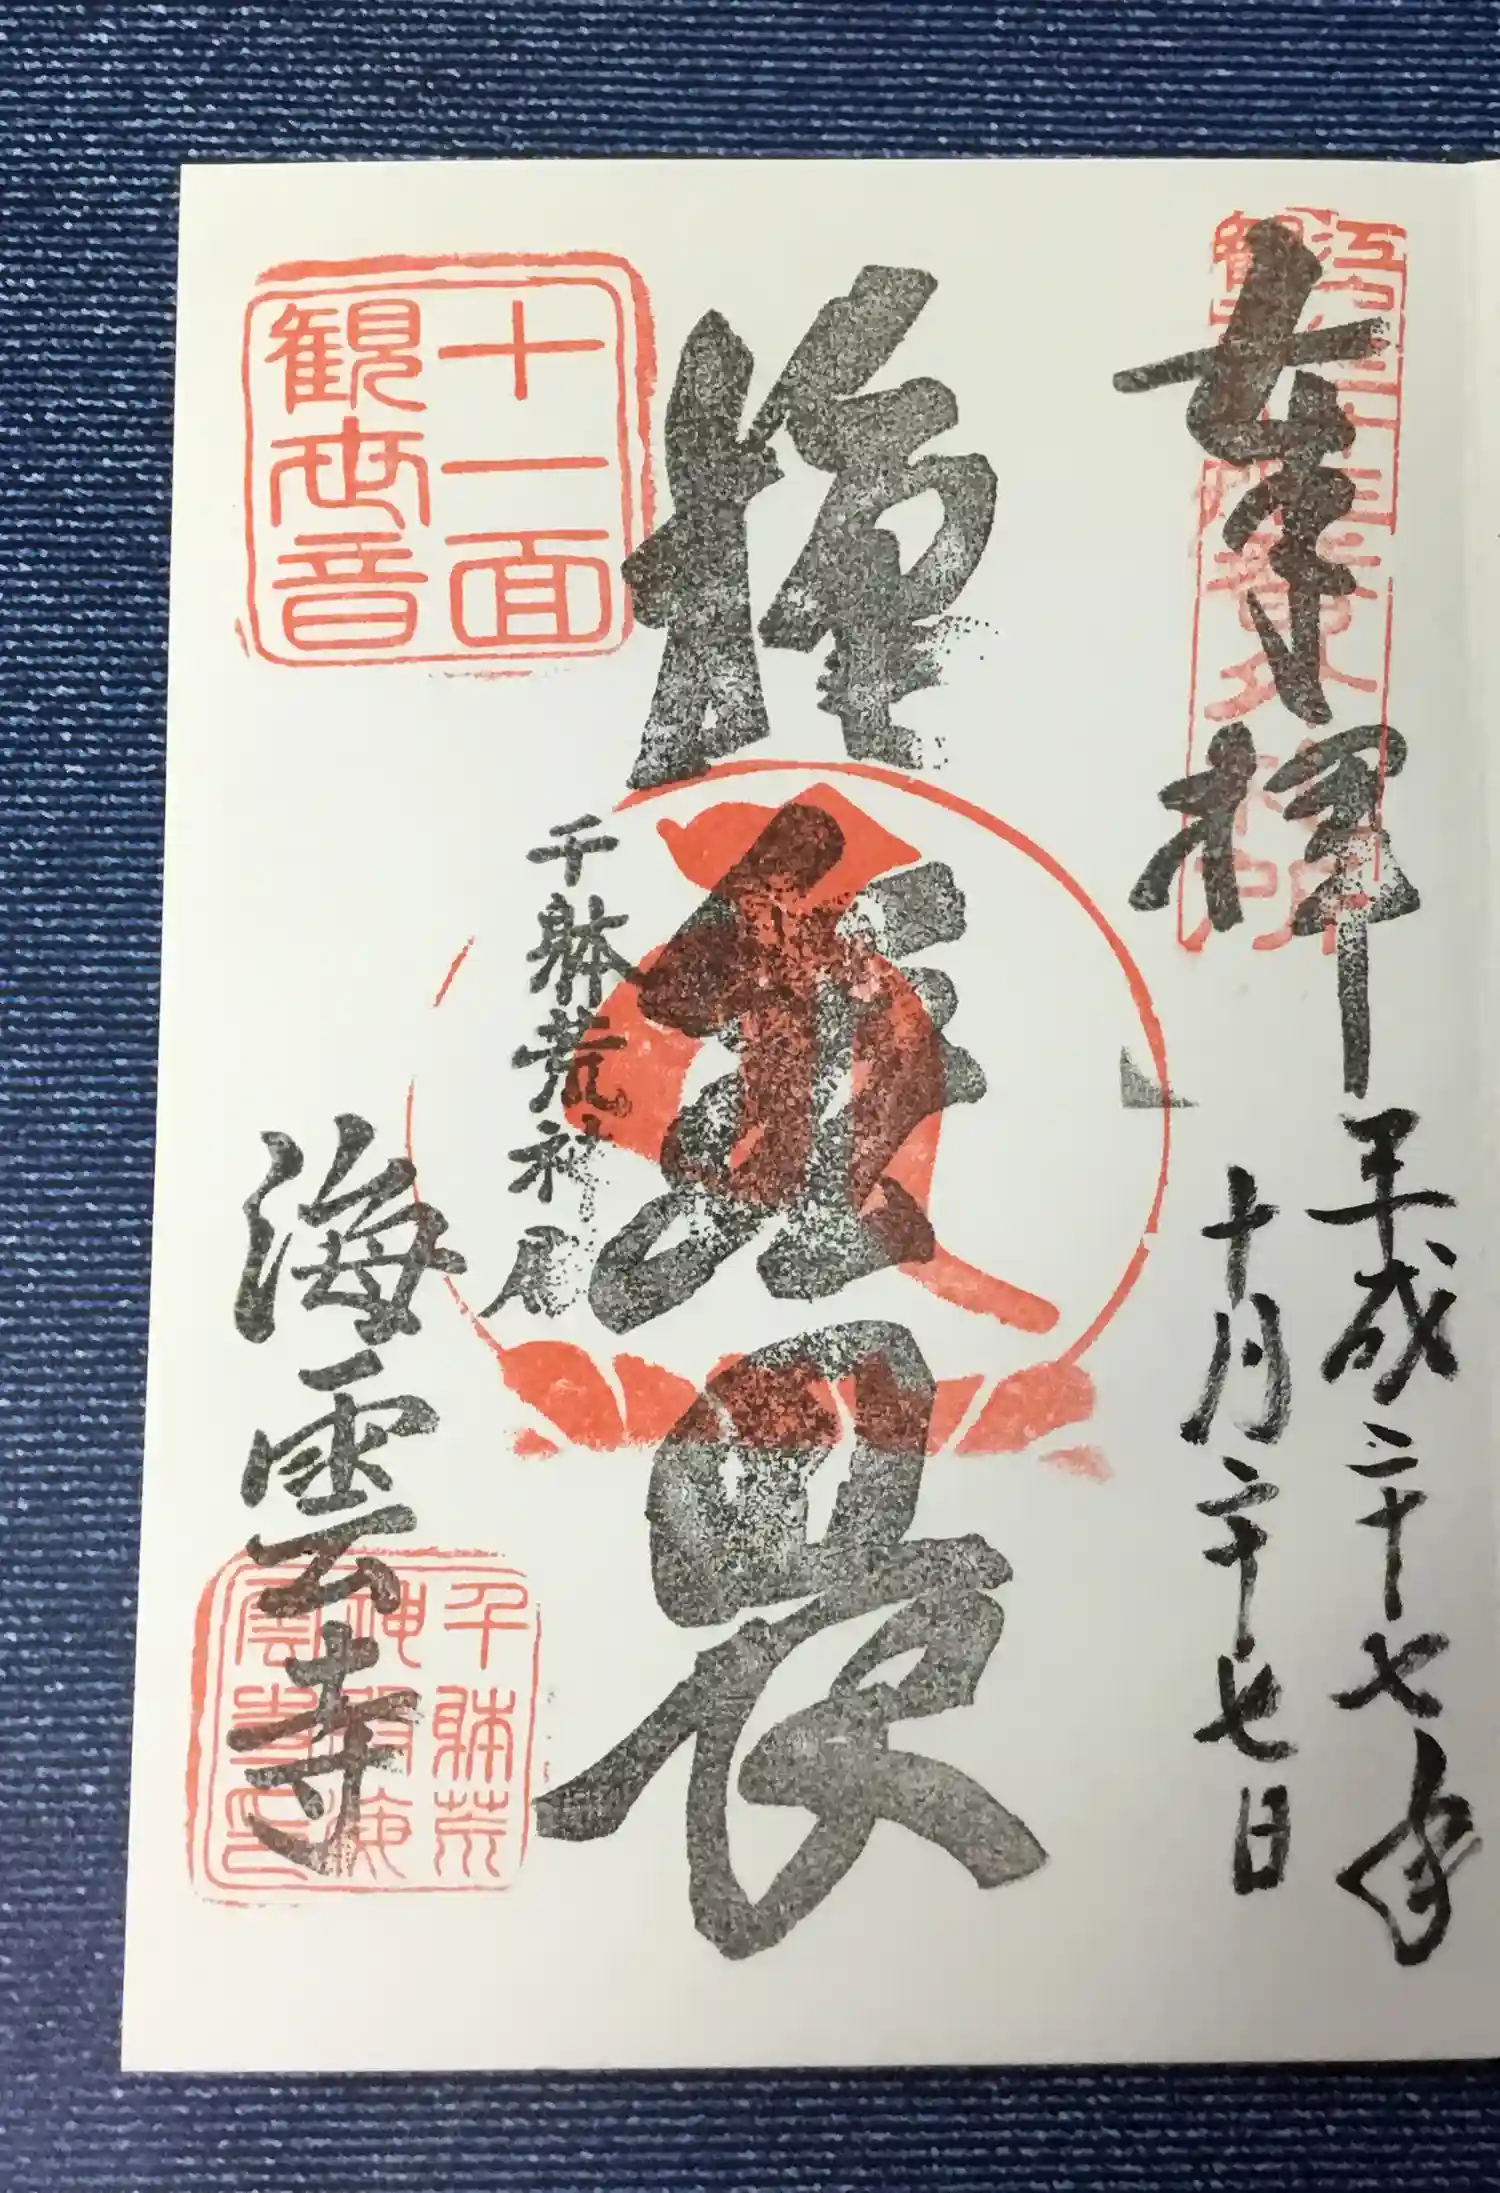 奉拝
平成二十七年
十月二十七日
施無畏
千躰荒神
海雲寺
十一面
観世音
千躰荒
神殿海
雲寺印